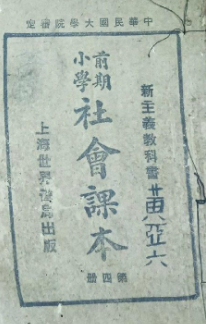 中華民國大學院審定
新主義教科書
前期
小學
社會課本
第四冊
上海世界書局出版